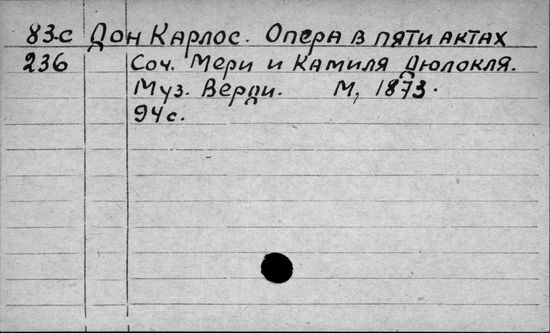 83-с Дон Карлос. Опера в пяти актах
236 Соч. Мери и Камиля Дюлокля.
Муз. Верди. М, 1873.
94с.